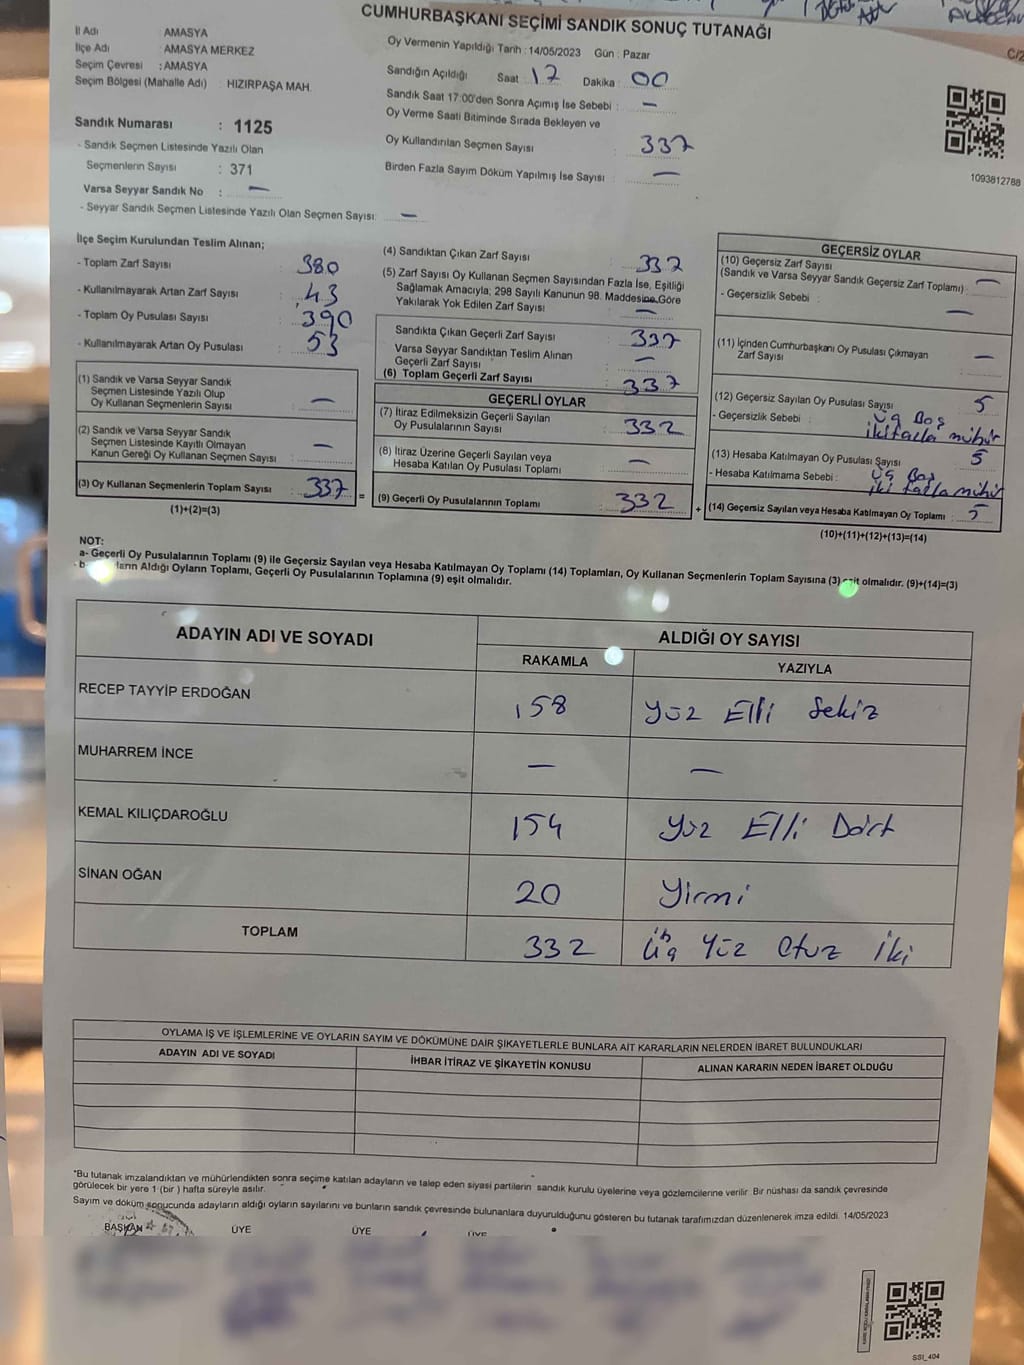 CUMHURBAŞKANI SEÇİMİ SANDIK SONUÇ TUTANAĞI
C/2
İl Adı : AMASYA
İlçe Adı : AMASYA MERKEZ
Seçim Çevresi : AMASYA
Seçim Bölgesi (Mahalle Adı) : HIZIRPAŞA MAH.
Sandık Numarası : 1125
- Sandık Seçmen Listesinde Yazılı Olan
Seçmenlerin Sayısı : 371
Varsa Seyyar Sandık No : —
- Seyyar Sandık Seçmen Listesinde Yazılı Olan Seçmen Sayısı: —
Oy Vermenin Yapıldığı Tarih : 14/05/2023 Gün : Pazar
Sandığın Açıldığı Saat : 17 Dakika : 00
Sandık Saat 17:00'den Sonra Açımış İse Sebebi : —
Oy Verme Saati Bitiminde Sırada Bekleyen ve
Oy Kullandırılan Seçmen Sayısı : 337
Birden Fazla Sayım Döküm Yapılmış İse Sayısı : —
1093812788
İlçe Seçim Kurulundan Teslim Alınan;
- Toplam Zarf Sayısı : 380
- Kullanılmayarak Artan Zarf Sayısı : 43
- Toplam Oy Pusulası Sayısı : 390
- Kullanılmayarak Artan Oy Pusulası : 53
(1) Sandık ve Varsa Seyyar Sandık
Seçmen Listesinde Yazılı Olup
Oy Kullanan Seçmenlerin Sayısı : —
(2) Sandık ve Varsa Seyyar Sandık
Seçmen Listesinde Kayıtlı Olmayan
Kanun Gereği Oy Kullanan Seçmen Sayısı : —
(3) Oy Kullanan Seçmenlerin Toplam Sayısı : 337 =
(1)+(2)=(3)
(4) Sandıktan Çıkan Zarf Sayısı : 337
(5) Zarf Sayısı Oy Kullanan Seçmen Sayısından Fazla İse, Eşitliği
Sağlamak Amacıyla; 298 Sayılı Kanunun 98. Maddesine Göre
Yakılarak Yok Edilen Zarf Sayısı : —
Sandıkta Çıkan Geçerli Zarf Sayısı : 337
Varsa Seyyar Sandıktan Teslim Alınan
Geçerli Zarf Sayısı : —
(6) Toplam Geçerli Zarf Sayısı : 337
GEÇERLİ OYLAR
(7) İtiraz Edilmeksizin Geçerli Sayılan
Oy Pusulalarının Sayısı : 332
(8) İtiraz Üzerine Geçerli Sayılan veya
Hesaba Katılan Oy Pusulası Toplamı : —
(9) Geçerli Oy Pusulalarının Toplamı : 332 +
GEÇERSİZ OYLAR
(10) Geçersiz Zarf Sayısı
(Sandık ve Varsa Seyyar Sandık Geçersiz Zarf Toplamı) : —
- Geçersizlik Sebebi : —
(11) İçinden Cumhurbaşkanı Oy Pusulası Çıkmayan
Zarf Sayısı : —
(12) Geçersiz Sayılan Oy Pusulası Sayısı : 5
- Geçersizlik Sebebi : üç Boş
iki fazla mühür
(13) Hesaba Katılmayan Oy Pusulası Sayısı : 5
- Hesaba Katılmama Sebebi : üç Boş
iki fazla mühür
(14) Geçersiz Sayılan veya Hesaba Katılmayan Oy Toplamı : 5
(10)+(11)+(12)+(13)=(14)
NOT:
a- Geçerli Oy Pusulalarının Toplamı (9) ile Geçersiz Sayılan veya Hesaba Katılmayan Oy Toplamı (14) Toplamları, Oy Kullanan Seçmenlerin Toplam Sayısına (3) eşit olmalıdır. (9)+(14)=(3)
- b- Aldığı Oyların Toplamı, Geçerli Oy Pusulalarının Toplamına (9) eşit olmalıdır.
ADAYIN ADI VE SOYADI ALDIĞI OY SAYISI
RAKAMLA YAZIYLA
RECEP TAYYİP ERDOĞAN 158 Yüz Elli Sekiz
MUHARREM İNCE — —
KEMAL KILIÇDAROĞLU 154 Yüz Elli Dört
SİNAN OĞAN 20 Yirmi
TOPLAM 332 Üç Yüz Otuz İki
OYLAMA İŞ VE İŞLEMLERİNE VE OYLARIN SAYIM VE DÖKÜMÜNE DAİR ŞİKAYETLERLE BUNLARA AİT KARARLARIN NELERDEN İBARET BULUNDUKLARI
ADAYIN ADI VE SOYADI İHBAR İTİRAZ VE ŞİKAYETİN KONUSU ALINAN KARARIN NEDEN İBARET OLDUĞU
"Bu tutanak imzalandıktan ve mühürlendikten sonra seçime katılan adayların ve talep eden siyasi partilerin sandık kurulu üyelerine veya gözlemcilerine verilir. Bir nüshası da sandık çevresinde
görülecek bir yere 1 (bir ) hafta süreyle asılır.
Sayım ve döküm sonucunda adayların aldığı oyların sayılarını ve bunların sandık çevresinde bulunanlara duyurulduğunu gösteren bu tutanak tarafımızdan düzenlenerek imza edildi. 14/05/2023
BAŞKAN ÜYE ÜYE ÜYE
SSI_404